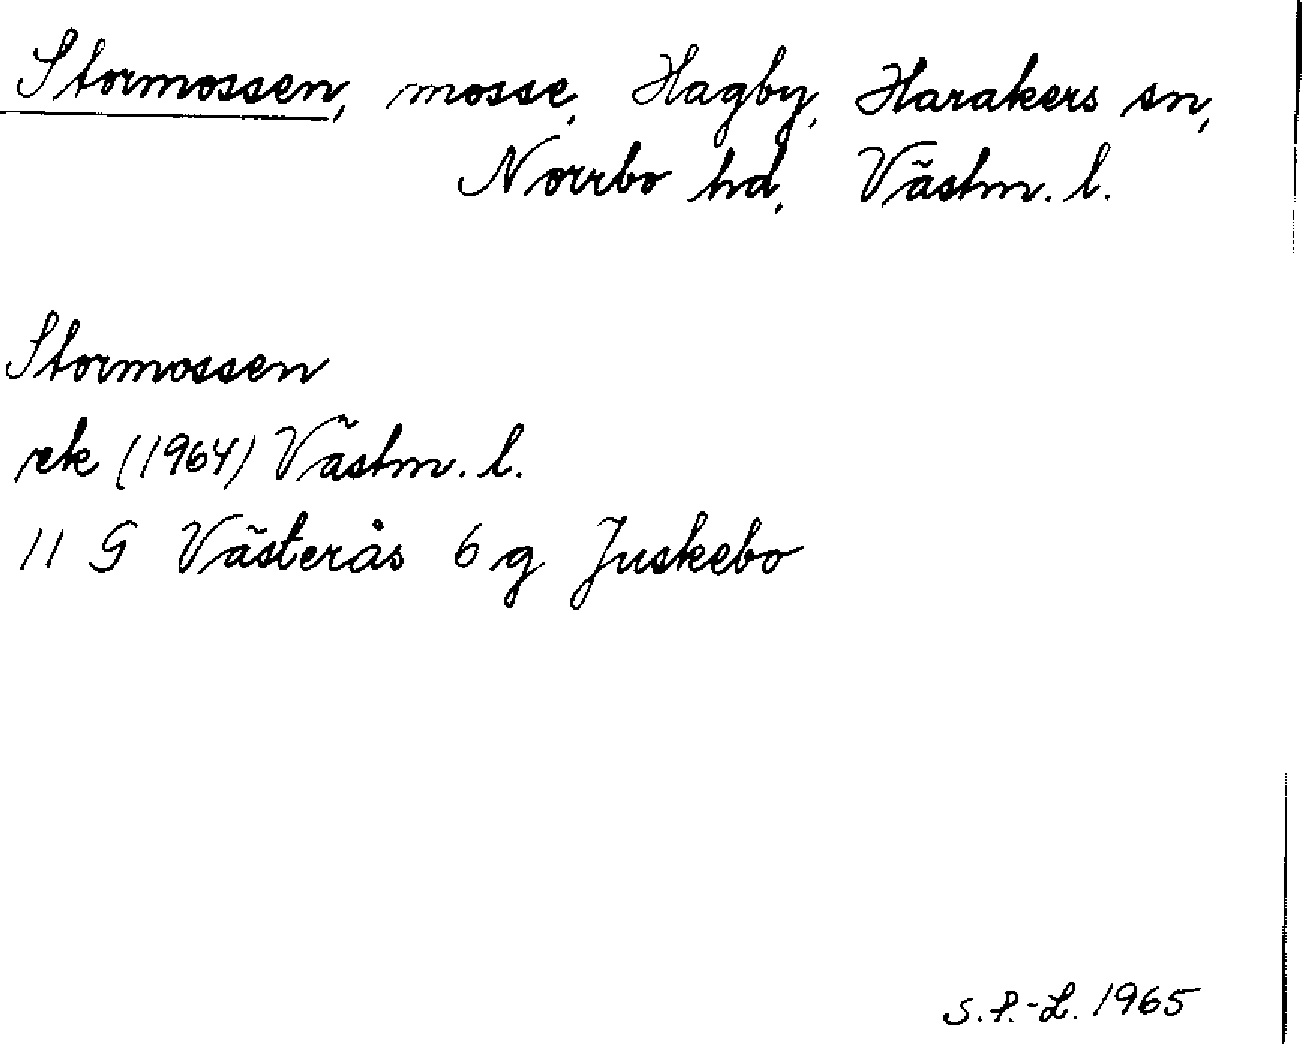 Stormossen, mosse, Hagby, Harakers sn,
Norrbo hd, Västm. l.
Stormossen
rek (1964) Västm. l.
11 G Västerås 6 g Juskebo
S.P.-L. 1965